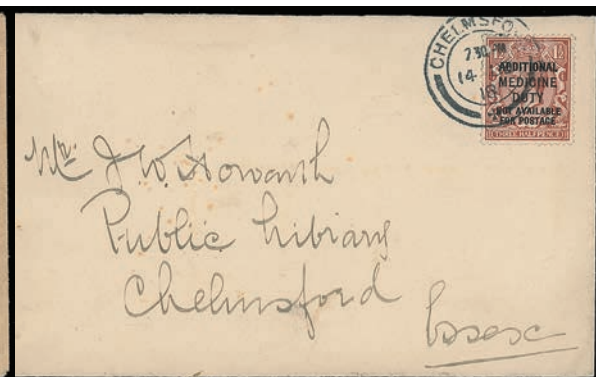 CHELMSFORD
7.30 PM
14
18
1½ 1½
ADDITIONAL
MEDICINE
DUTY
NOT AVAILABLE
FOR POSTAGE
THREE HALFPENCE
Mr. J. W. Howarth
Public Library
Chelmsford
Essex